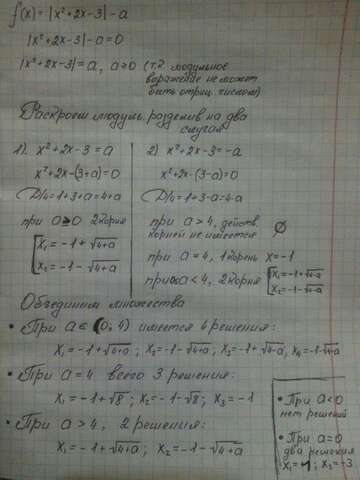 f(x) = |x²+2x-3| - a
|x²+2x-3| - a = 0
|x²+2x-3| = a, a≥0 (т.к. модульное
выражение не может
быть отриц. числом)
Раскроем модуль, разделив на два
случая
1). x²+2x-3=a
x²+2x-(3+a)=0
D/4=1+3+a=4+a
при a≥0 2 корня
x₁ = -1+√4+a
x₂ = -1-√4+a
2) x²+2x-3=-a
x²+2x-(3-a)=0
D/4=1+3-a=4-a
при a>4, действ.
корней не имеется ∅
при a=4, 1 корень x=-1
при a<4, 2 корня x₁=-1+√4-a
x₂=-1-√4-a
Объединим множества
• При a∈(0;4) имеется 4 решения:
x₁=-1+√4+a; x₂=-1-√4+a; x₃=-1+√4-a; x₄=-1-√4-a
• При a=4 всего 3 решения:
x₁=-1+√8; x₂=-1-√8; x₃=-1
• При a>4, 2 решения:
x₁=-1+√4+a; x₂=-1-√4+a
• При a<0
нет решений
• При a=0
два решения
x₁=1; x₂=-3